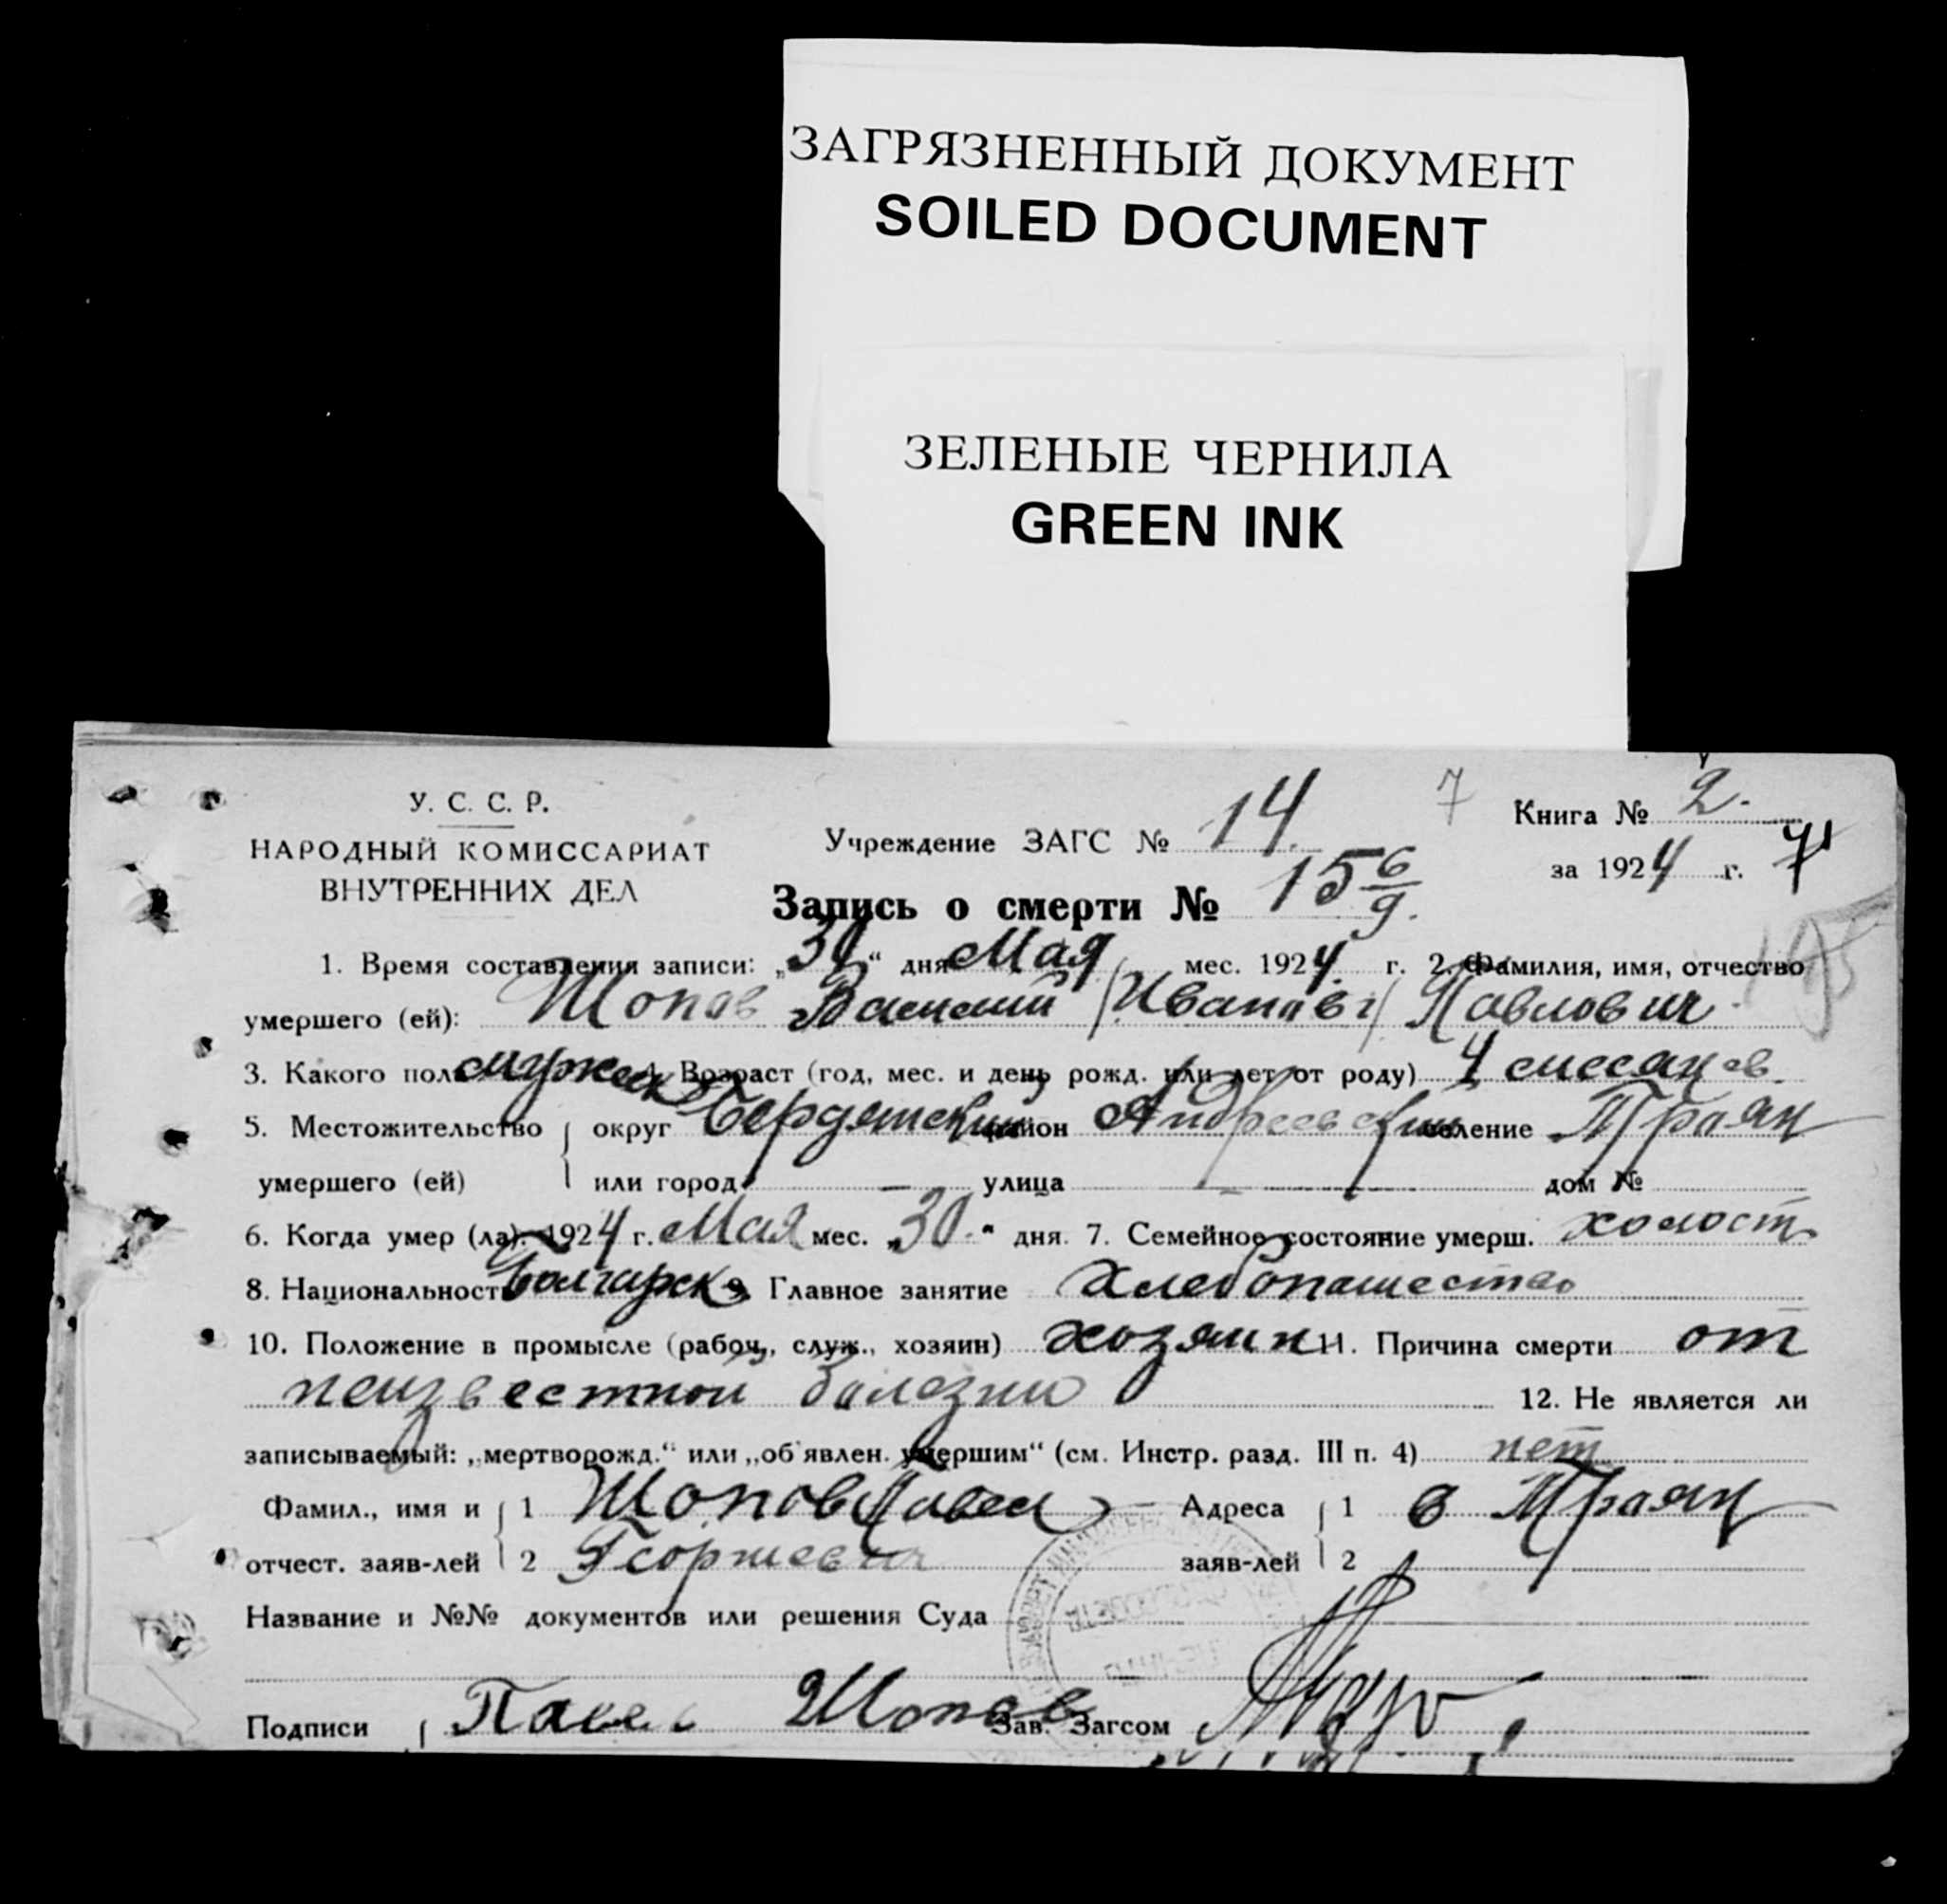 ЗАГРЯЗНЕННЫЙ ДОКУМЕНТ
SOILED DOCUMENT
ЗЕЛЕНЫЕ ЧЕРНИЛА
GREEN INK
У. С. С. Р.
НАРОДНЫЙ КОМИССАРИАТ
ВНУТРЕННИХ ДЕЛ
Учреждение ЗАГС № 14.
7
Книга № 2.
за 1924 г. 7
Запись о смерти № 15 6/9.
1. Время составления записи: „30“ дня Мая мес. 1924 г. 2. Фамилия, имя, отчество
умершего (ей): Шопов Василий /Иванов/ Павлович
3. Какого пола мужск 4. Возраст (год, мес. и день рожд. или лет от роду) 4 мессацев.
5. Местожительство округ Бердянский район Андреевский селение Траян
умершего (ей) или город — улица — дом №
6. Когда умер (ла): 1924 г. Мая мес. „30.“ дня. 7. Семейное состояние умерш. холост
8. Национальность Болгарск 9. Главное занятие Хлебопашество
10. Положение в промысле (рабоч., служ., хозяин) хозяин 11. Причина смерти от
неизвестной болезни 12. Не является ли
записываемый: „мертворожд.“ или „об'явлен. умершим“ (см. Инстр. разд. III п. 4) нет
Фамил., имя и 1 Шопов Павел Адреса 1 в Траян
отчест. заяв-лей 2 Георгиевич заяв-лей 2
Название и №№ документов или решения Суда
Подписи Павел Шопов Зав. Загсом